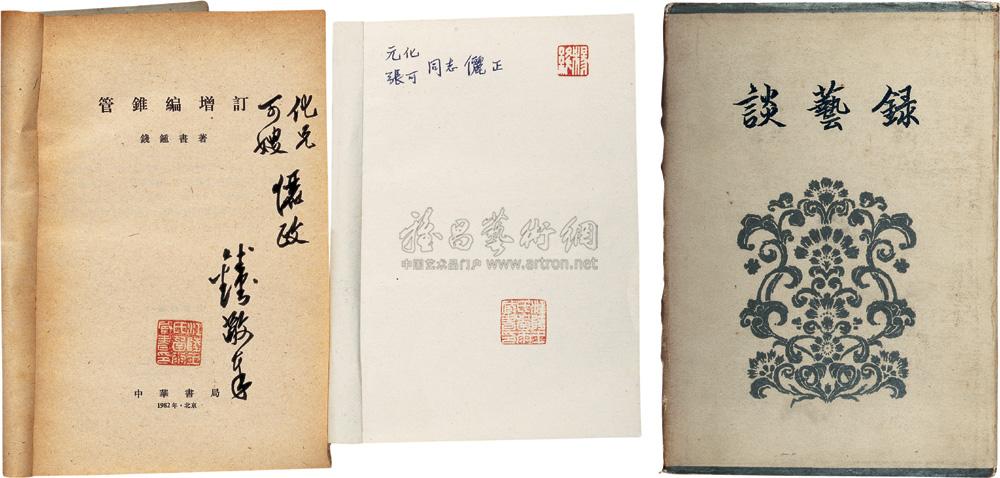 管錐編增訂
錢鍾書著
化兄
可嫂
儷政
敬奉
中華書局
1982年·北京
元化
張可 同志儷正
雅昌藝術網
中国艺术品门户 www.artron.net
談藝録